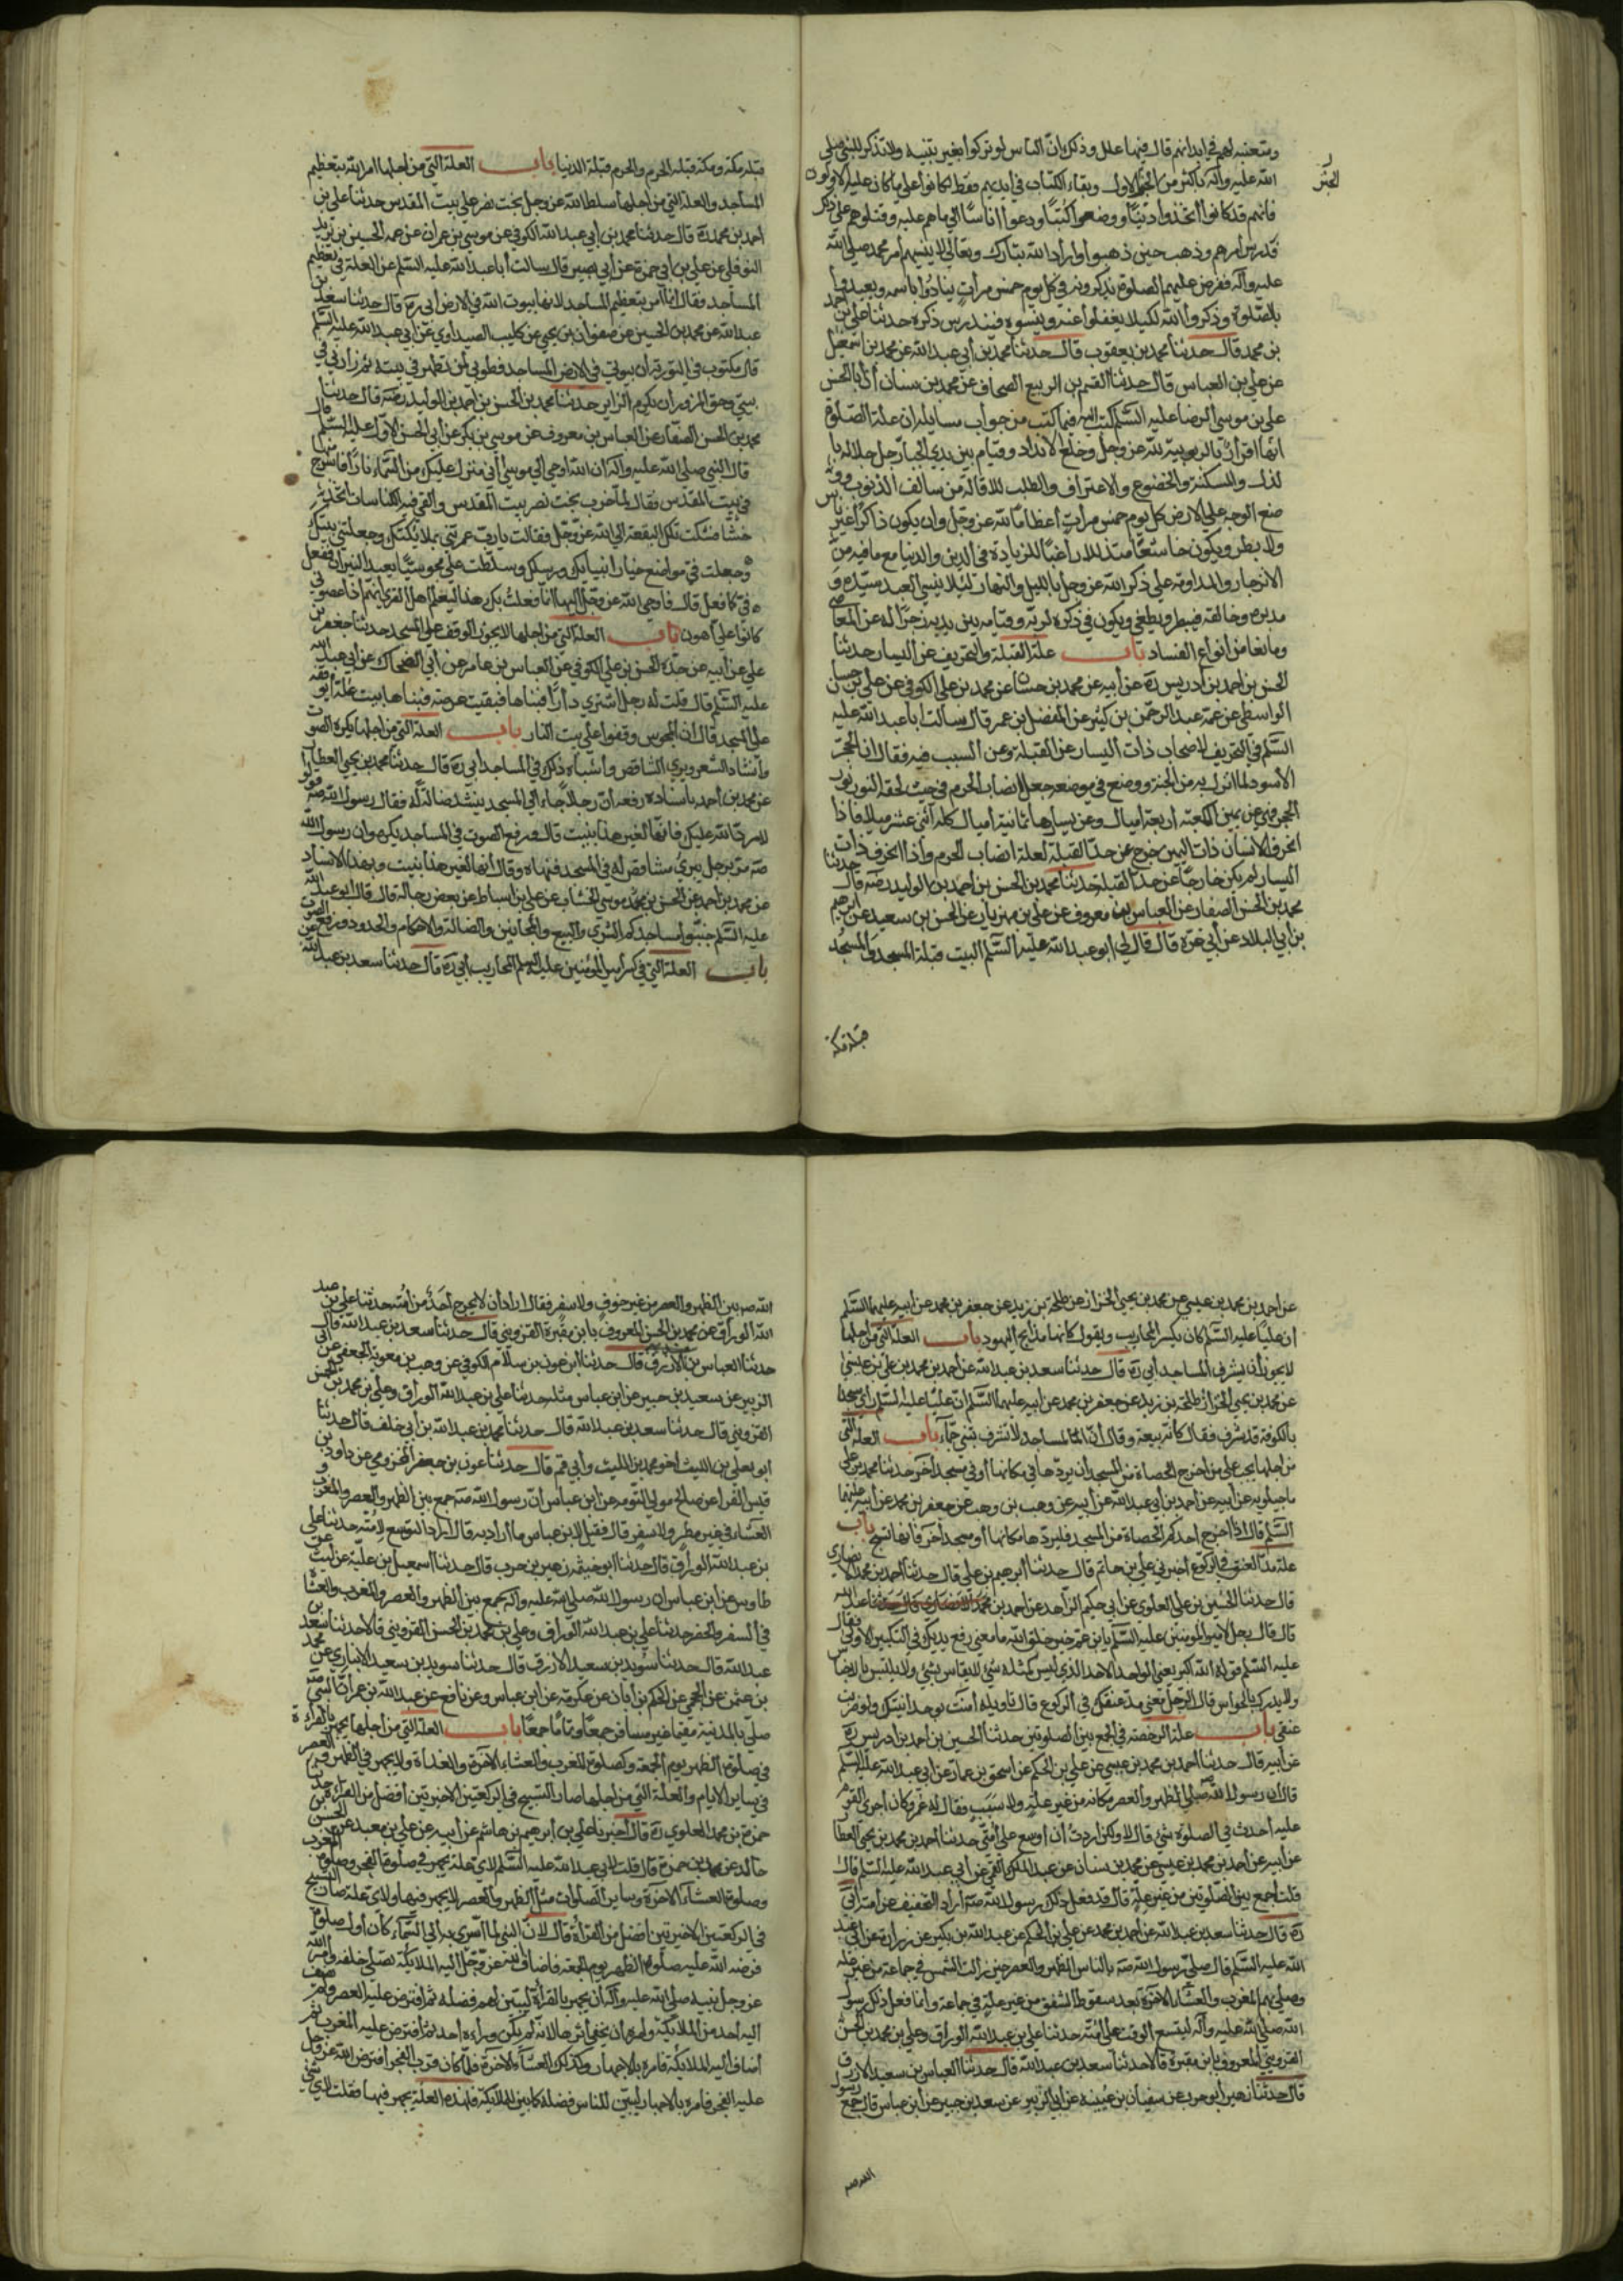 ومتعبة لهم في ابدانهم قال فيها علل وذلك ان الناس لو تركوا بغير تنبيه ولا تذكر للنبي صلى
الله عليه وآله باكثر من الخبر الاول وبقاء الكتاب في ايديهم فقط لكانوا على ما كان عليه الاولون
فانهم قد كانوا اتخذوا دينًا ووضعوا كتبًا ودعوا اناسًا الى ما هم عليه وقتلوهم على ذلك
فدرس امرهم وذهب حين ذهبوا واراد الله تبارك وتعالى لا ينسيهم امر محمد صلى الله
عليه وآله ففرض عليهم الصلوة يذكرونه في كل يوم خمس مرات ينادوا باسمه وتعبدوا
بالصلوة وذكروا الله لكيلا يغفلوا عنه وينسوه فيندرس ذكره حدثنا علي بن احمد
بن محمد قال حدثنا محمد بن يعقوب قال حدثنا محمد بن أبي عبد الله عن محمد بن اسمعيل
عن علي بن العباس قال حدثنا القسم بن الربيع الصحاف عن محمد بن سنان أن أبا الحسن
علي بن موسى الرضا عليه السلم كتب اليه فيما كتب من جواب مسايله ان علة الصلوة
انها اقرار بالربوبية لله عز وجل وخلع الانداد وقيام بين يدي الجبار جل جلاله با
لذل والمسكنة والخضوع والاعتراف والطلب للاقالة من سالف الذنوب وو
ضع الوجه على الارض كل يوم خمس مرات اعظامًا لله عز وجل وان يكون ذاكرًا غير ناس
ولا بطر ويكون خاشعًا متذللا راغبًا للزيادة في الدين والدنيا مع ما فيه من
الانزجار والمداومة على ذكر الله عز وجل بالليل والنهار لئلا ينسى العبد سيده و
مدبره وخالقه فيبطر ويطغى ويكون في ذكره لربه وقيامه بين يديه زجرًا له عن المعاصي
ومانعا من انواع الفساد باب علة القبلة والتحريف عن اليسار حدثنا
الحسن بن احمد بن ادريس ره عن أبيه عن محمد بن حسان عن محمد بن علي الكوفي عن علي بن حسان
الواسطي عن عمه عبد الرحمن بن كثير عن المفضل بن عمر قال سالت ابا عبد الله عليه
السلم في التحريف لاصحابه ذات اليسار عن القبلة وعن السبب فيه فقال ان الحجر
الأسود لما انزل به من الجنة ووضع في موضعه جعل انصاب الحرم في حيث لحقه النور نور
الحجر فهي عن يمين الكعبة اربعة اميال وعن يسارها ثمانية اميال كله اثنى عشر ميلا فاذا
انحرف الانسان ذات اليمين خرج عن حد القبلة لعلة انصاب الحرم واذا انحرف ذات
اليسار لم يكن خارجًا عن حد القبلة حدثنا محمد بن الحسن بن احمد بن الوليد رضه قال حدثنا
محمد بن الحسن الصفار عن العباس بن معروف عن علي بن مهزيار عن الحسن بن سعيد عن ابرهيم
بن أبي البلاد عن أبي غرة قال قال لي ابو عبد الله عليه السلم البيت قبلة المسجد والمسجد
قبلة مكة
قبلة مكة ومكة قبلة الحرم والحرم قبلة الدنيا باب العلة التي من اجلها امر الله بتعظيم
المساجد والعلة التي من اجلها سلط الله عز وجل بخت نصر على بيت المقدس حدثنا علي بن
احمد بن محمد ره قال حدثنا محمد بن أبي عبد الله الكوفي عن موسى بن عمران عن عمه الحسين بن يزيد
النوفلي عن علي بن أبي حمزة عن أبي بصير قال سالت أبا عبد الله عليه السلم عن العلة في تعظيم
المساجد فقال انما امر بتعظيم المساجد لانها بيوت الله في الارض أبي ره قال حدثنا سعد بن
عبد الله عن محمد بن الحسين عن صفوان بن يحيى عن كليب الصيداوي عن ابي عبد الله عليه السلم
قال مكتوب في التورية ان بيوتي في الارض المساجد فطوبى لمن تطهر في بيته ثم زارني في
بيتي وحق المزور أن يكرم الزاير حدثنا محمد بن الحسن بن أحمد بن الوليد رضه قال حدثنا
محمد بن الحسن الصفار عن العباس بن معروف عن موسى بن بكر عن أبي الحسن الاول عليه السلم قال
قال النبي صلى الله عليه وآله ان الله اوحى الى موسى أني منزل عليك من السماء نارًا فاسرج منها
في بيت المقدس فقال لما خرب بخت نصر بيت المقدس والقي فيه الكناسات اتخذ ثم
حشًا فشكت تلك البقعة الى الله عز وجل فقالت يارب عمرتني بملائكتك وجعلتني بيتك
وجعلت في مواضع خيار انبيايك ورسلك وسلطت علي مجوسيًا يعبد النيران ففعل
في ما فعل قال فاوحى الله عز وجل اليها انما فعلت بك هذا ليعلم اهل القرى انهم اذا عصوني
كانوا علي اهون باب العلة التي من اجلها لا يجوز الوقف على المسجد حدثنا جعفر بن
علي عن أبيه عن جده الحسن بن علي الكوفي عن العباس بن عامر عن أبي الضحاك عن ابي عبد الله
عليه السلم قال قلت له رجل اشترى دارًا فبناها فبقيت عرصة فبناها بيت غلة أيوقفه
على المسجد قال ان المجوس وقفوا على بيت النار باب العلة التي من اجلها يكره الصوت
وانشاد الشعر وبري المشاقص وأشباه ذلك في المساجد أبي ره قال حدثنا محمد بن يحيى العطار
عن محمد بن احمد باسناده رفعه أن رجلا جاء الى المسجد ينشد ضالة له فقال رسول الله صه قولوا
له لا رد الله عليك فانها لغير هذا بنيت قال ورفع الصوت في المساجد يكره وان رسول الله
صه مر برجل يبري مشاقص له في المسجد فنهاه وقال انها لغير هذا بنيت وبهذا الاسناد
عن محمد بن احمد عن الحسن بن موسى الخشاب عن علي بن اسباط عن بعض رجاله قال قال ابو عبد الله
عليه السلم جنبوا مساجدكم الشرى والبيع والمجانين والضالة والاحكام والحدود ورفع الصوت
باب العلة التي في كسر امير المؤمنين عليه السلم المحاريب أبي ره قال حدثنا سعد بن عبد الله
عن احمد بن محمد بن عيسى عن محمد بن يحيى الخزاز عن طلحة بن زيد عن جعفر بن محمد عن أبيه عليهما السلم
ان عليًا عليه السلم كان يكسر المحاريب ويقول كانها مذابح اليهود باب العلة التي من اجلها
لا يجوز أن يشرف المساجد أبي ره قال حدثنا سعد بن عبد الله عن احمد بن محمد بن علي بن عيسى
عن محمد بن يحيى الخزاز عن طلحة بن زيد عن جعفر بن محمد عن أبيه عليهما السلم ان عليًا عليه السلم رأى مسجدًا
بالكوفة قد شرف فقال كانه بيعة وقال أن المساجد لا تشرف تبنى جماء باب العلة التي
من اجلها يجب على من اخرج الحصاة من المسجد ان يردها في مكانها أو في مسجد آخر حدثنا محمد بن علي
ماجيلويه عن أبيه عن احمد بن أبي عبد الله عن أبيه عن وهب بن وهب عن جعفر بن محمد عن أبيه عليهما
السلم قال اذا اخرج احدكم الحصاة من المسجد فليردها مكانها أو مسجد آخر فانها تسبح باب
علة مد العنق في الركوع اخبرني علي بن حاتم قال حدثنا ابرهيم بن علي قال حدثنا احمد بن محمد الانصاري
قال حدثنا الحسين بن علي العلوي عن أبي حكيم الزاهد عن احمد بن عبد الله
قال قال رجل لامير المؤمنين عليه السلم يا بن عم خير خلق الله ما معنى رفع يديك في التكبير الاولى فقال
عليه السلم قوله الله اكبر يعني الواحد الاحد الذي ليس كمثله شئ لا يقاس بشئ ولا يلتبس بالاجناس
ولا يدرك بالحواس قال الرجل ما معنى مد عنقك في الركوع قال تاويله امنت بوحدانيتك ولو ضربت
عنقي باب علة الرخصة في الجمع بين الصلوتين حدثنا الحسين بن احمد بن ادريس ره
عن أبيه قال حدثنا احمد بن محمد بن عيسى عن علي بن الحكم عن اسحق بن عمار عن أبي عبد الله عليه السلم
قال ان رسول الله صه صلى الظهر والعصر مكانه من غير علة ولا سبب فقال له عمر وكان أجرى القوم
عليه أحدث في الصلوة شئ قال لا ولكن اردت أن اوسع على أمتي حدثنا أحمد بن محمد بن يحيى العطار
عن أبيه عن أحمد بن محمد بن عيسى عن محمد بن سنان عن عبد الملك القمي عن أبي عبد الله عليه السلم قال
قلت اجمع بين الصلوتين من غير علة قال قد فعل ذلك رسول الله صه أراد التخفيف عن أمته أبي
ره قال حدثنا سعد بن عبد الله عن احمد بن محمد عن علي بن الحكم عن عبد الله بن بكير عن زرارة عن أبي عبد
الله عليه السلم قال صلى رسول الله صه بالناس الظهر والعصر حين زالت الشمس في جماعة من غير علة
وصلى بهم المغرب والعشاء الآخرة بعد سقوط الشفق من غير علة في جماعة وانما فعل ذلك رسول
الله صلى الله عليه وآله ليتسع الوقت على أمته حدثنا علي بن عبد الله الوراق وعلي بن محمد بن الحسن
القزويني المعروف بابن مقبرة قالا حدثنا سعد بن عبد الله قال حدثنا العباس بن سعيد الازرق
قال حدثنا زهير أبو حرب عن سفيان بن عيينة عن ابي الزبير عن سعيد بن جبير عن ابن عباس قال جمع رسول
الله صه
الله صه بين الظهر والعصر من غير خوف ولا سفر فقال اراد أن لا يحرج أحدًا من أمته حدثنا علي بن عبد
الله الوراق عن محمد بن الحسن المعروف بابن مقبرة القزويني قال حدثنا سعد بن عبد الله قال
حدثنا العباس بن الازرق قال حدثنا ابن عون بن سلام الكوفي عن وهب بن معوية الجعفي عن ابي
الزبير عن سعيد بن جبير عن ابن عباس مثله حدثنا علي بن عبد الله الوراق وعلي بن محمد بن الحسن
القزويني قال حدثنا سعد بن عبد الله قال حدثنا محمد بن عبد الله بن أبي خلف قال حدثنا
ابو يعلى بن الليث اخو محمد بن الليث والي قم قال حدثنا عون بن جعفر المخزومي عن داود بن
قيس الفراء عن صالح مولى التومة عن ابن عباس أن رسول الله صه جمع بين الظهر والعصر والمغرب و
العشاء في غير مطر ولا سفر قال فقيل لابن عباس ما أراد به قال اراد التوسع لامته حدثنا علي
بن عبد الله الوراق قال حدثنا ابو خيثمة زهير بن حرب قال حدثنا اسمعيل بن علية عن ليث عن
طاوس عن ابن عباس ان رسول الله صلى الله عليه وآله جمع بين الظهر والعصر والمغرب والعشا
في السفر والحضر حدثنا علي بن عبد الله الوراق وعلي بن محمد بن الحسن القزويني قالا حدثنا سعد بن
عبد الله قال حدثنا سويد بن سعيد الازرق قال حدثنا سويد بن سعيد الانباري عن محمد
بن عثمن عن الجمحي عن الحكم بن أبان عن عكرمة عن ابن عباس وعن نافع عن عبد الله بن عمر ان النبي صه
صلى بالمدينة مقيما غير مسافر جمعًا وتمامًا جمعًا باب العلة التي من اجلها يجهر بالقراءة
في صلوة الظهر يوم الجمعة وكصلوة المغرب والعشاء الآخرة والغداة ولا يجهر في الظهر والعصر
في ساير الايام والعلة التي من اجلها صار التسبيح في الركعتين الاخيرتين أفضل من القراءة حدثنا
حمزة بن محمد العلوي ره قال اخبرنا علي بن ابرهيم بن هاشم عن أبيه عن علي بن معبد عن الحسن بن
خالد عن محمد بن حمزة قال قلت لابي عبد الله عليه السلم لاي علة يجهر في صلوة الفجر وصلوة المغرب
وصلوة العشاء الآخرة وساير الصلوات مثل الظهر والعصر لا يجهر فيها ولاي علة صار التسبيح
في الركعتين الاخيرتين افضل من القراءة قال لان النبي لما أسرى به الى السماء كان أول صلوة
فرضه الله عليه صلوة الظهر يوم الجمعة فاضاف الله عز وجل اليه الملائكة تصلى خلفه وأمر الله
عز وجل نبيه صلى الله عليه وآله أن يجهر بالقرأة ليبين لهم فضله ثم افترض عليه العصر ولم يضف
اليه احد من الملائكة وأمره أن يخفي القراءة لانه لم يكن وراءه أحد ثم افترض عليه المغرب ثم
أضاف اليه الملائكة فامره بالاجهار وكذلك العشاء الآخرة فلما كان قرب الفجر افترض الله عز وجل
عليه الفجر فامره بالاجهار ليبين للناس فضله كما بين للملائكة فلهذه العلة يجهر فيها فقلت لاي شئ